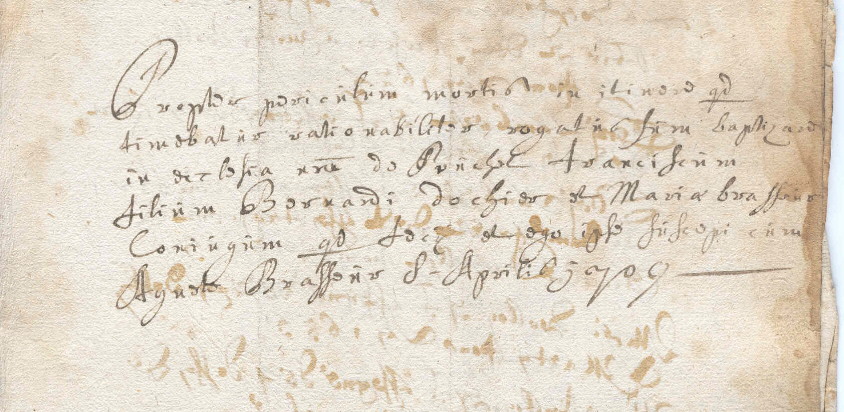 Propter periculum mortis in itinere qd
timebatur rationabiliter rogatus sum baptizare
in ecclesia nra de franciscum
filium Bernardi dochier et Mariæ brasseur
Coniugum qd feci et ego ipse suscepi cum
Agnete Brasseur 8 Aprilis 1709